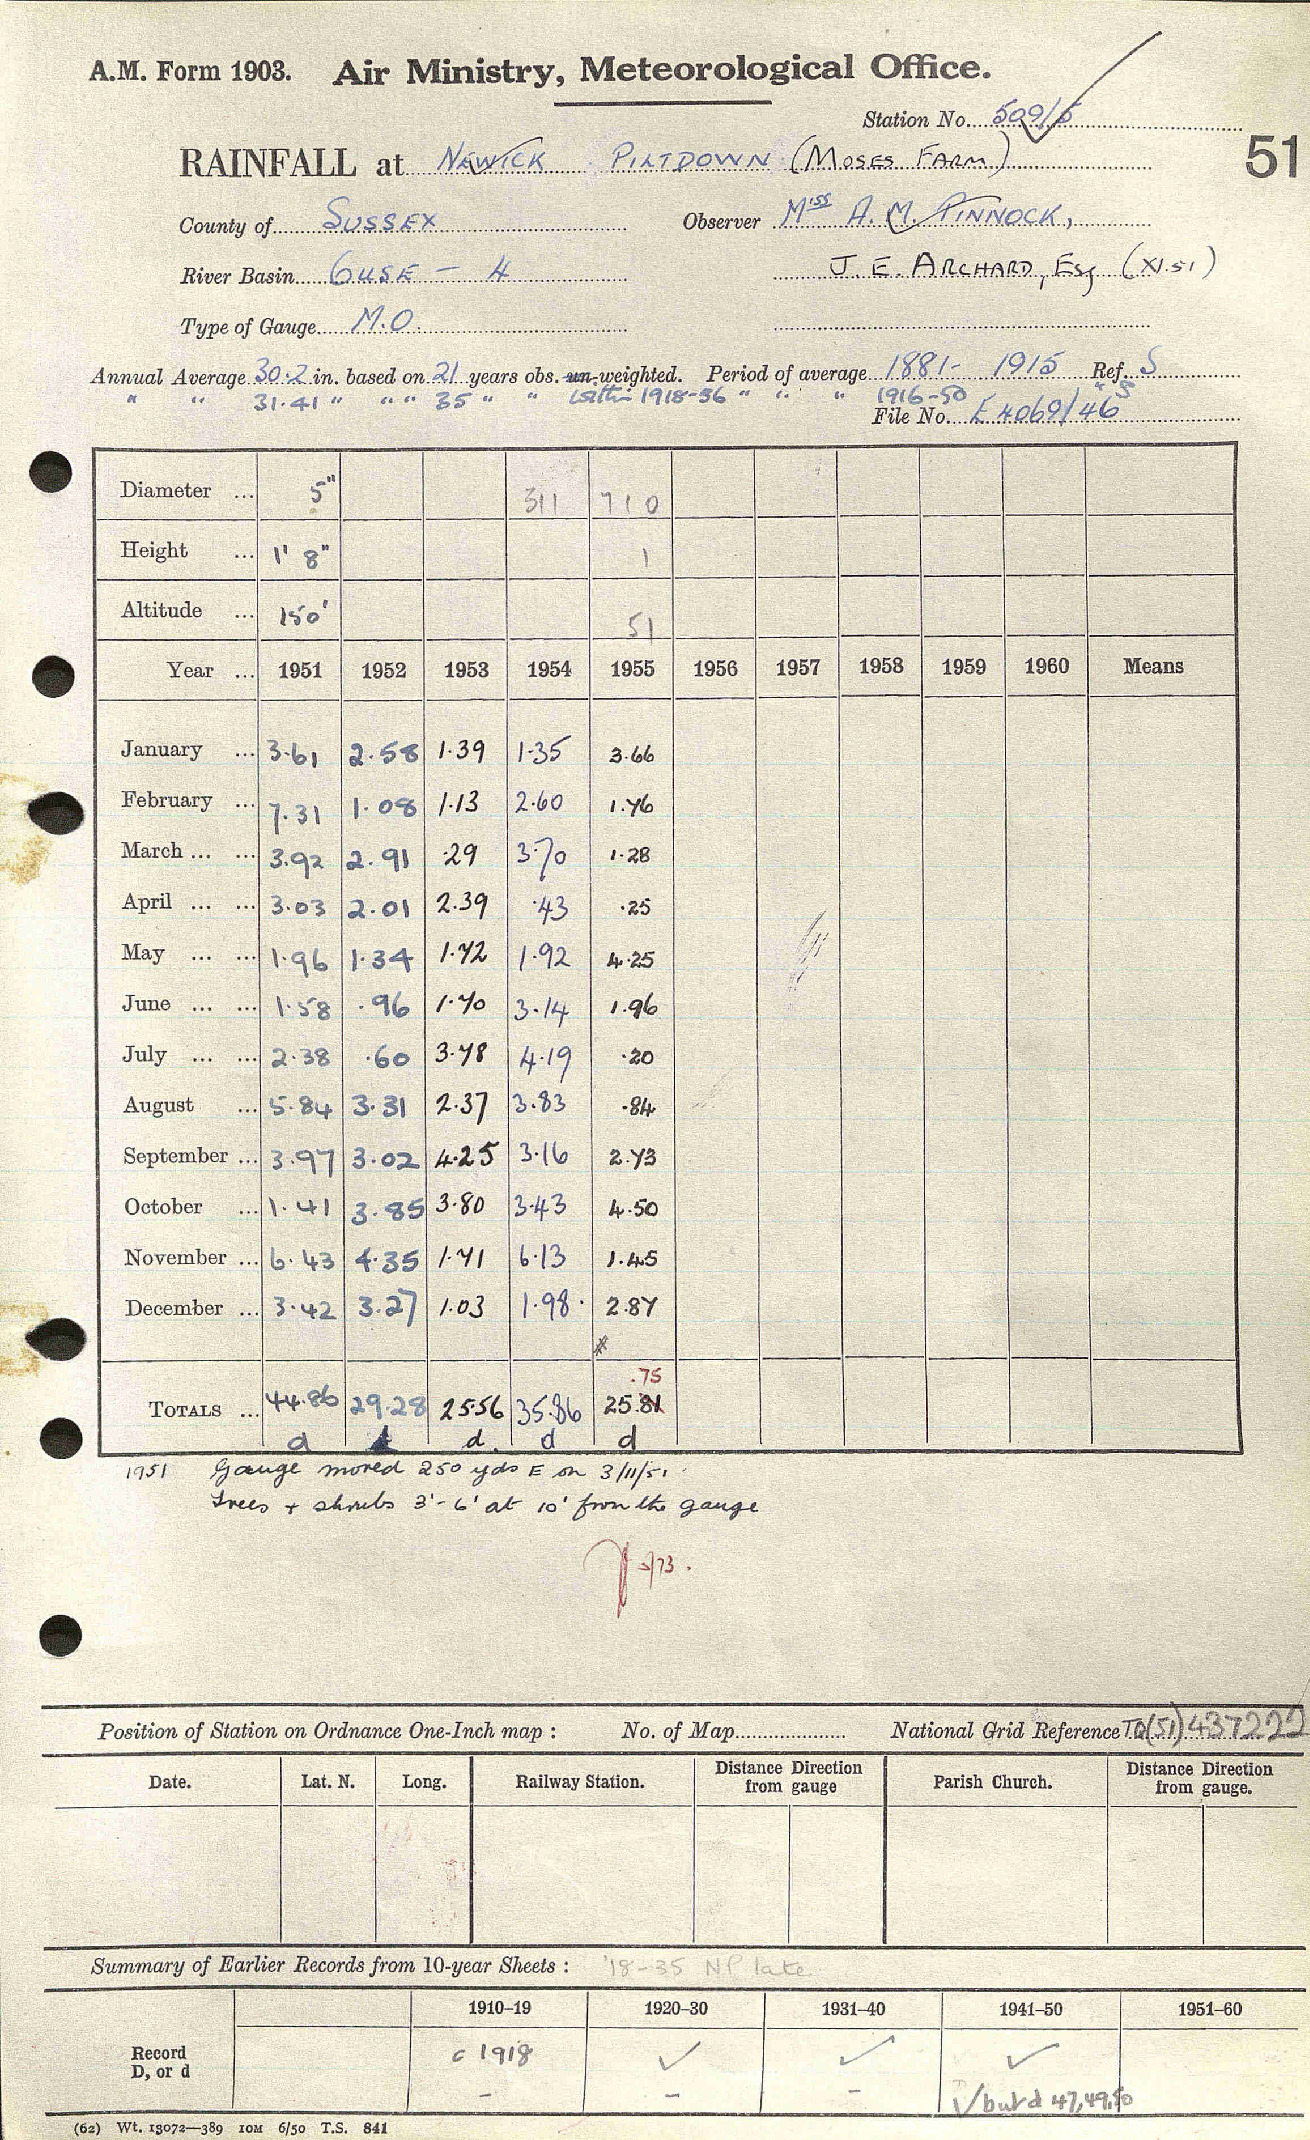 A.M. Form 1903. Air Ministry, Meteorological Office.
Station No. 509/5
51
RAINFALL at NEWICK PILTDOWN (MOSES FARM)
County of SUSSEX Observer Miss A. M. PINNOCK,
River Basin OUSE - 4 J. E. ARCHARD, Esq (XI.51)
Type of Gauge M.O.
Annual Average 30.2 in. based on 21 years obs. un-weighted. Period of average 1881- 1915 Ref. S
" " 31.41 " " " 35 " " within 1918-56 " " " 1916-50 " S
File No. E 4069/46
Diameter ... 5" 311 710
Height ... 1' 8" 1
Altitude ... 150' 51
Year ... 1951 1952 1953 1954 1955 1956 1957 1958 1959 1960 Means
January ... 3.61 2.58 1.39 1.35 3.66
February ... 7.31 1.08 1.13 2.60 1.76
March ... ... 3.92 2.91 .29 3.70 1.28
April ... ... 3.03 2.01 2.39 .43 .25
May ... ... 1.96 1.34 1.72 1.92 4.25
June ... ... 1.58 .96 1.70 3.14 1.96
July ... ... 2.38 .60 3.78 4.19 .20
August ... 5.84 3.31 2.37 3.83 .84
September ... 3.97 3.02 4.25 3.16 2.73
October ... 1.41 3.85 3.80 3.43 4.50
November ... 6.43 4.35 1.71 6.13 1.45
December ... 3.42 3.27 1.03 1.98 2.87
#
.75
TOTALS ... 44.86 29.28 25.56 35.86 25.81
d d d d
1951 Gauge moved 250 yds E on 3/11/51.
Trees + shrubs 3'-6' at 10' from the gauge
5/73.
Position of Station on Ordnance One-Inch map : No. of Map National Grid Reference TQ(51)437222
Date. Lat. N. Long. Railway Station. Distance Direction from gauge Parish Church. Distance Direction from gauge.
Summary of Earlier Records from 10-year Sheets : '18-35 NP late
1910–19 1920–30 1931–40 1941–50 1951–60
Record D, or d c 1918 ✓ ✓ ✓
- - - ✓ but d 47,49,50
(62) Wt. 13072—389 10M 6/50 T.S. 841